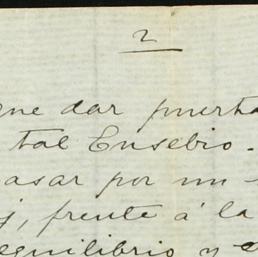 2
que dar puerta
tal Eusebio.
asar por un
j, frente á la
equilibrio y e